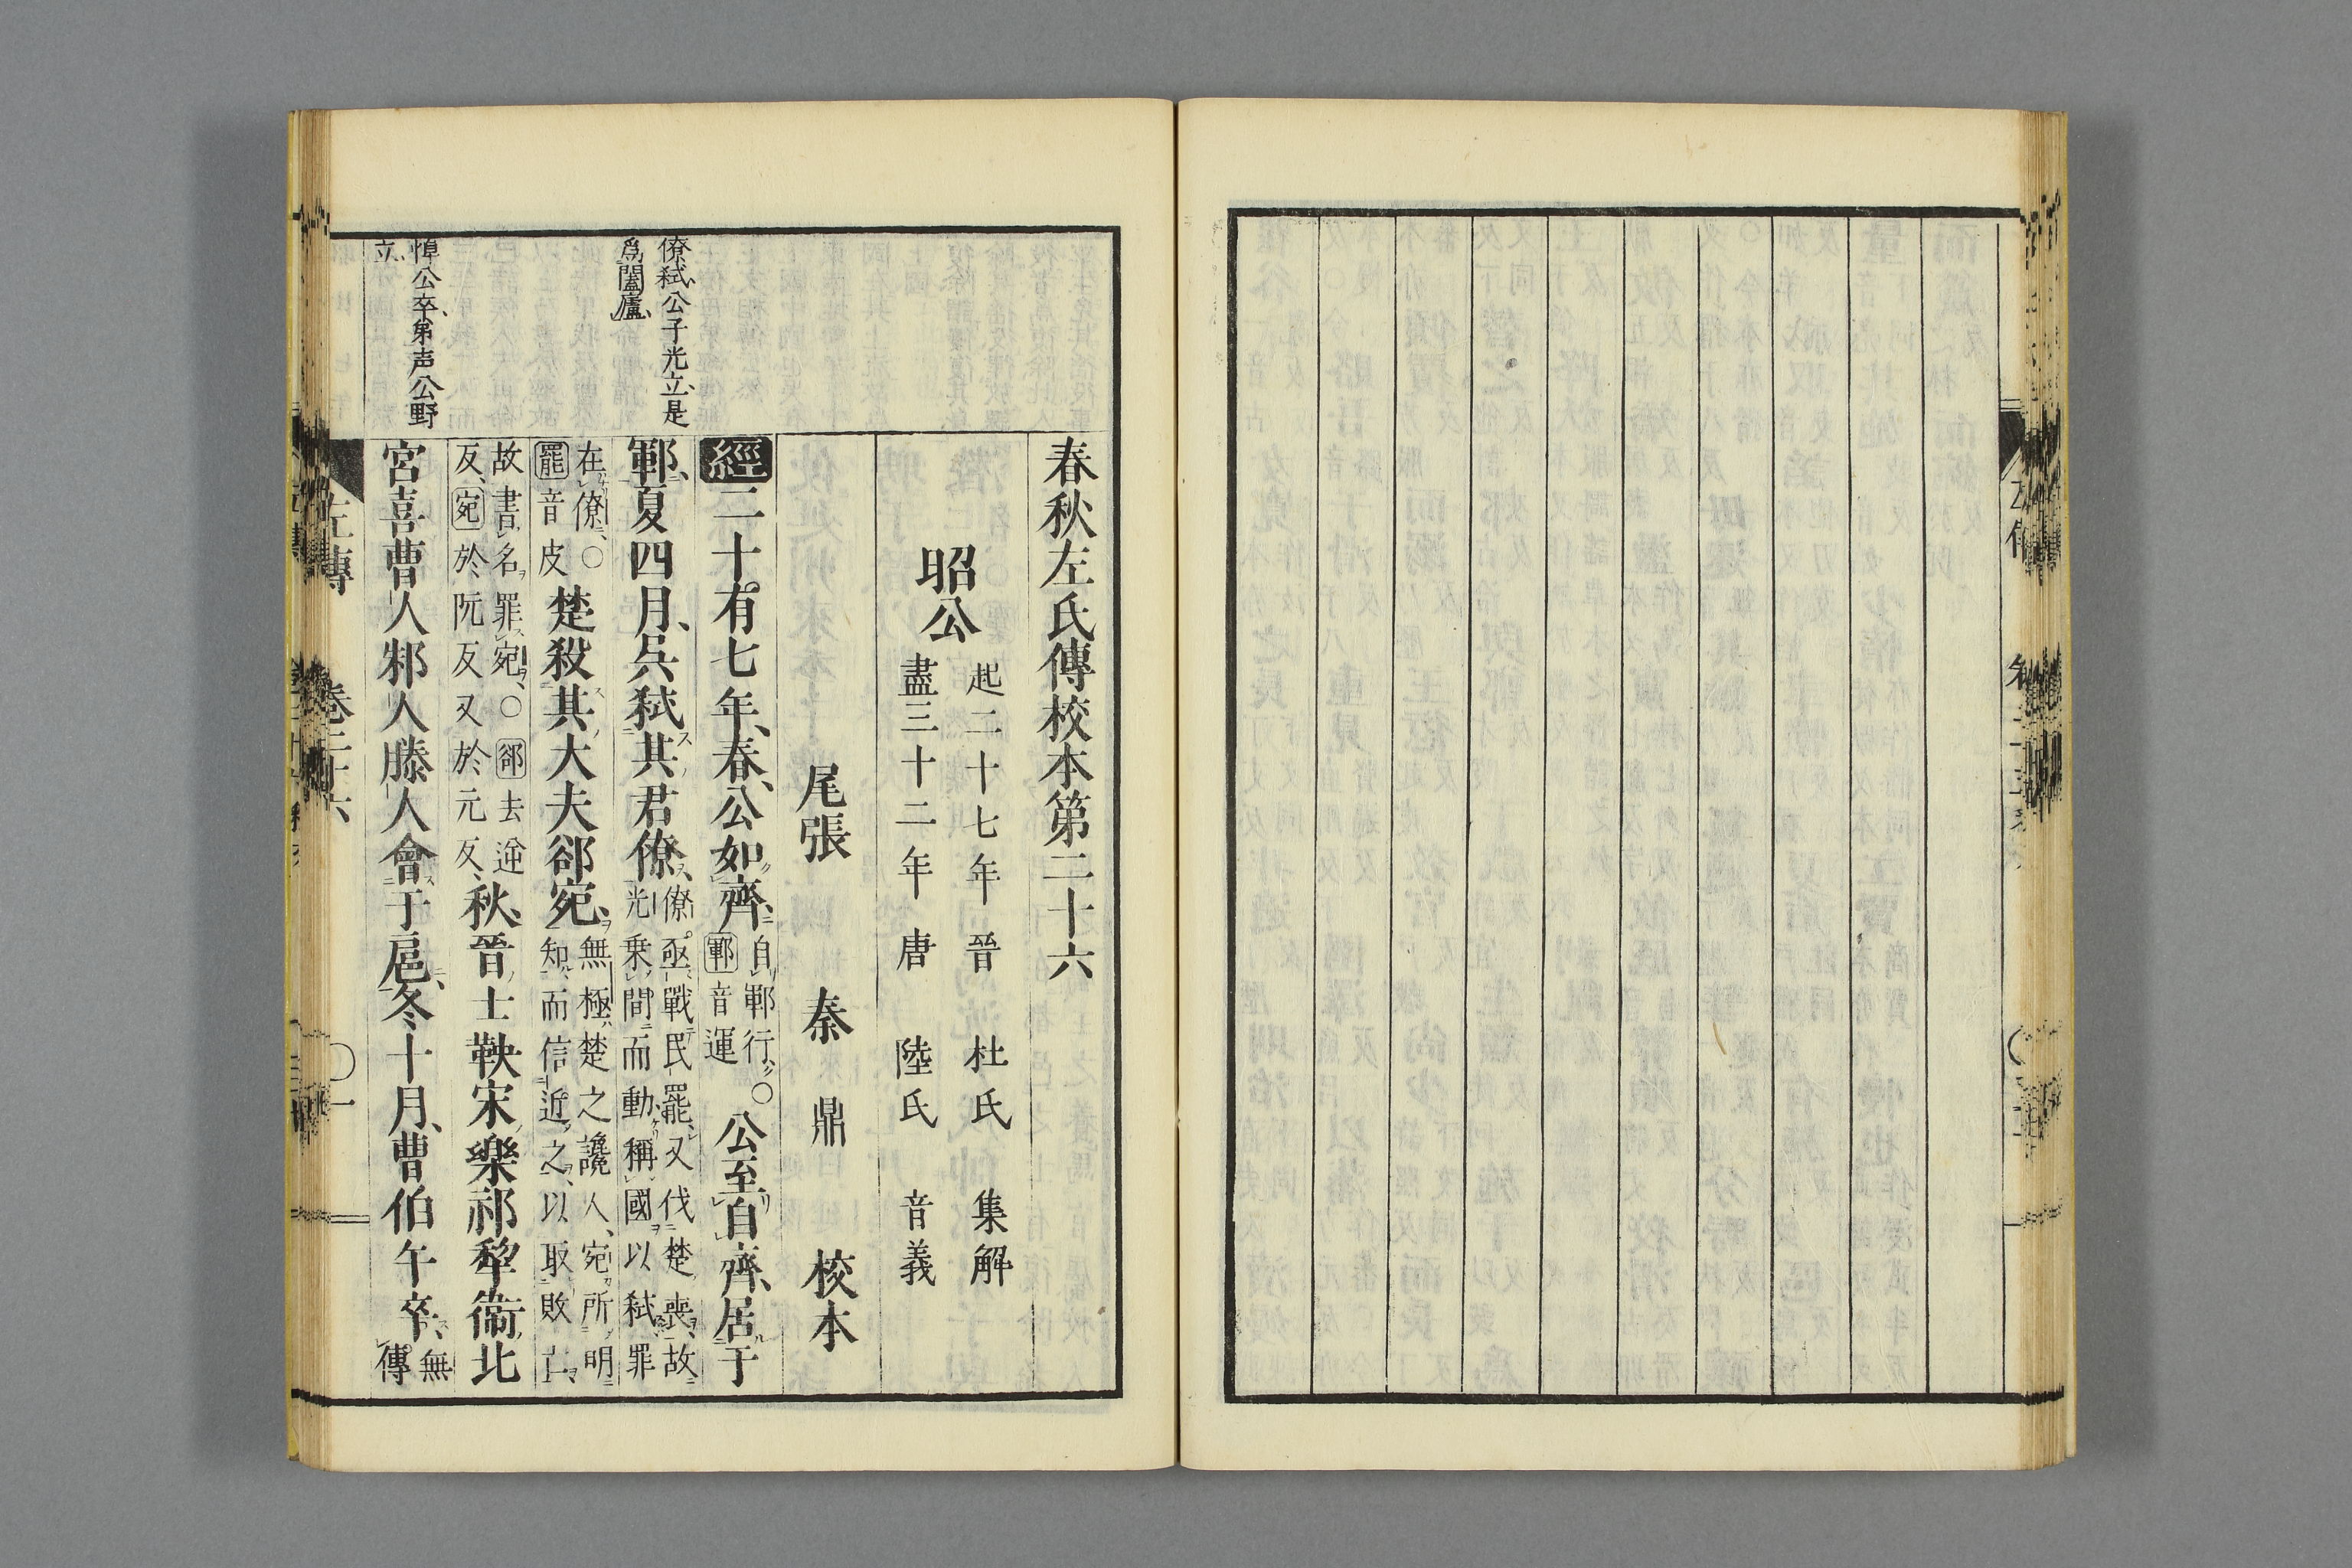 春秋左氏傳校本第二十六
昭公
起二十七年 晉 杜氏 集解
盡三十二年 唐 陸氏 音義
尾張 秦 鼎 校本
經二十有七年、春、公如齊、
自鄆行、〇
鄆音運
公至自齊、居于
鄆、夏四月、吳弑其君僚、
僚亟戰民罷、又伐楚喪、故
光乗間而動、稱國以弑、罪
在僚、〇
罷音皮
楚殺其大夫郤宛、
無極楚之讒人、宛所明
知、而信近之、以取敗亡、
故書名罪宛、〇郤去逆
反、宛於阮反又於元反、
秋、晉士鞅宋樂祁犂衞北
宮喜曹人邾人滕人會于扈、冬十月、曹伯午卒、
無
傳
僚弑、公子光立、是
爲闔廬、
悼公卒、弟声公野
立、
左傳 卷二十六 〇一